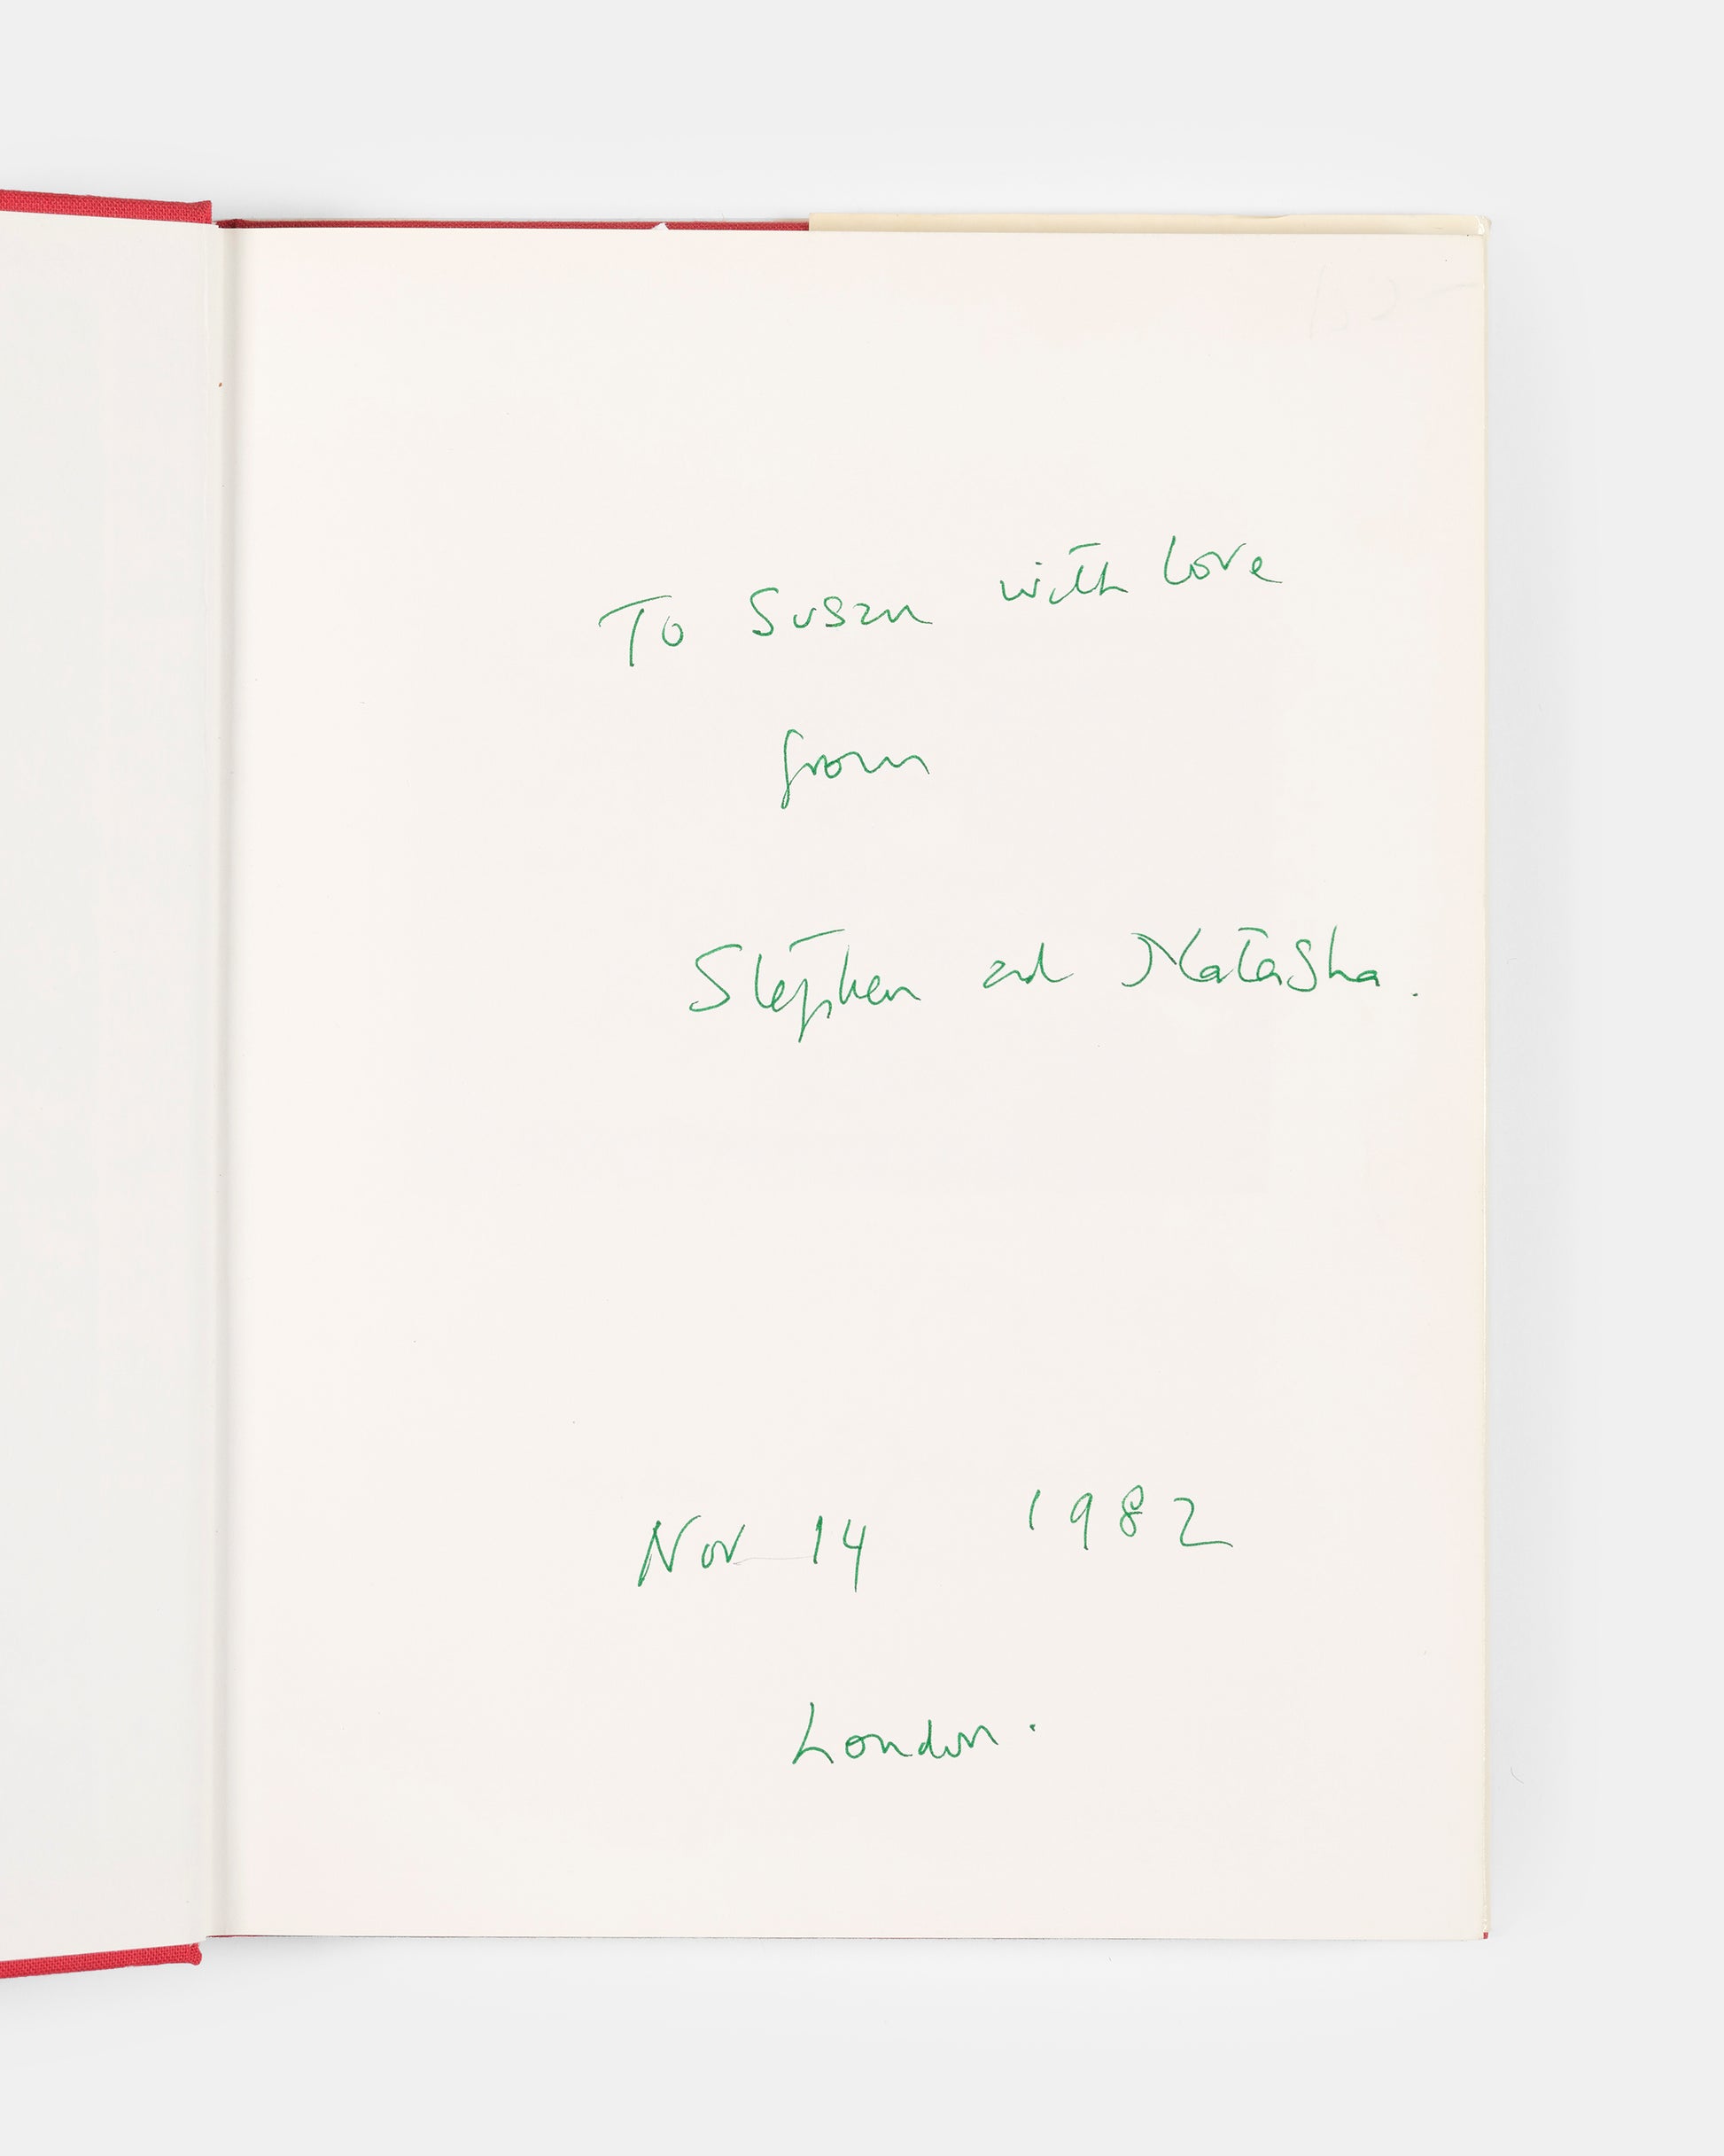 To Susan with love
from
Stephen and Natasha.
Nov 14 1982
London.